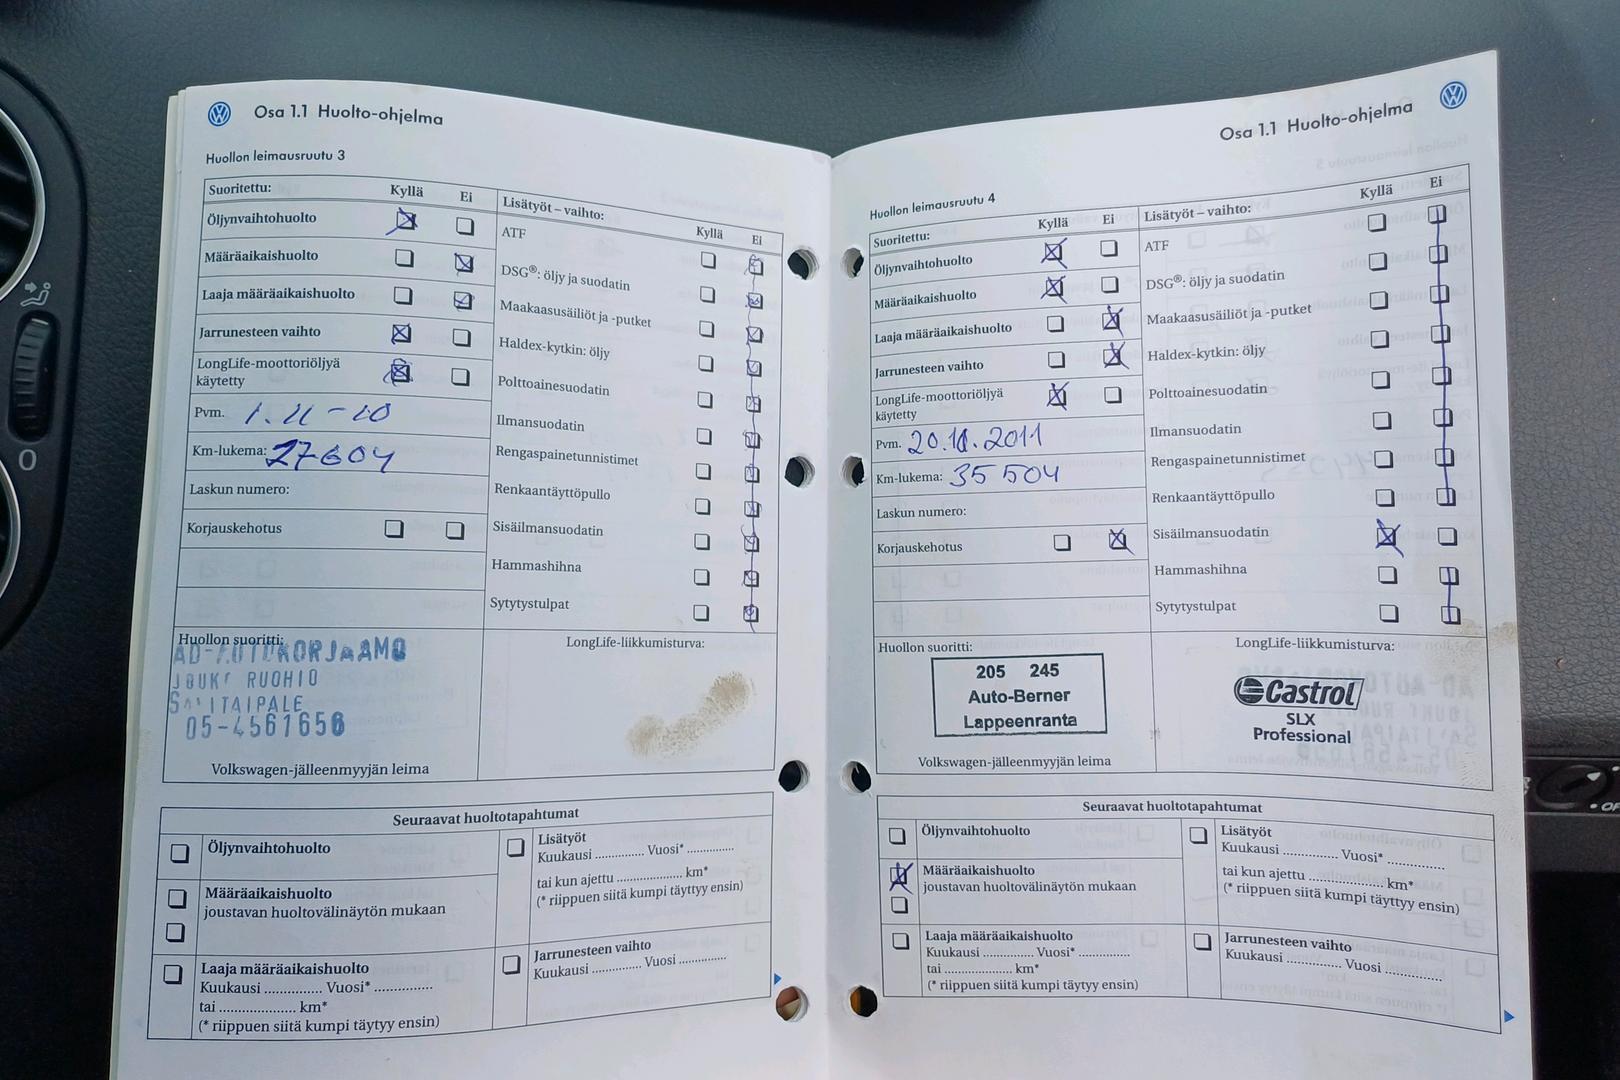 Osa 1.1 Huolto-ohjelma
Huollon leimausruutu 3
Suoritettu: Kyllä Ei
Öljynvaihtohuolto
Määräaikaishuolto
Laaja määräaikaishuolto
Jarrunesteen vaihto
LongLife-moottoriöljyä
käytetty
Pvm. 1.11-10
Km-lukema: 27604
Laskun numero:
Korjauskehotus
Lisätyöt – vaihto: Kyllä Ei
ATF
DSG®: öljy ja suodatin
Maakaasusäiliöt ja -putket
Haldex-kytkin: öljy
Polttoainesuodatin
Ilmansuodatin
Rengaspainetunnistimet
Renkaantäyttöpullo
Sisäilmansuodatin
Hammashihna
Sytytystulpat
Huollon suoritti:
AD-AUTOKORJAAMO
JOUKO RUOHIO
SAVITAIPALE
05-4561656
Volkswagen-jälleenmyyjän leima
LongLife-liikkumisturva:
Seuraavat huoltotapahtumat
Öljynvaihtohuolto
Määräaikaishuolto
joustavan huoltovälinäytön mukaan
Laaja määräaikaishuolto
Kuukausi .............. Vuosi* ..............
tai ..................... km*
(* riippuen siitä kumpi täytyy ensin)
Lisätyöt
Kuukausi .............. Vuosi* ..............
tai kun ajettu ..................... km*
(* riippuen siitä kumpi täyttyy ensin)
Jarrunesteen vaihto
Kuukausi .............. Vuosi ..............
Osa 1.1 Huolto-ohjelma
Huollon leimausruutu 4
Suoritettu: Kyllä Ei
Öljynvaihtohuolto
Määräaikaishuolto
Laaja määräaikaishuolto
Jarrunesteen vaihto
LongLife-moottoriöljyä
käytetty
Pvm. 20.11.2011
Km-lukema: 35 504
Laskun numero:
Korjauskehotus
Lisätyöt – vaihto: Kyllä Ei
ATF
DSG®: öljy ja suodatin
Maakaasusäiliöt ja -putket
Haldex-kytkin: öljy
Polttoainesuodatin
Ilmansuodatin
Rengaspainetunnistimet
Renkaantäyttöpullo
Sisäilmansuodatin
Hammashihna
Sytytystulpat
Huollon suoritti:
205 245
Auto-Berner
Lappeenranta
Volkswagen-jälleenmyyjän leima
LongLife-liikkumisturva:
Castrol
SLX
Professional
Seuraavat huoltotapahtumat
Öljynvaihtohuolto
Määräaikaishuolto
joustavan huoltovälinäytön mukaan
Laaja määräaikaishuolto
Kuukausi .............. Vuosi* ..............
tai ..................... km*
(* riippuen siitä kumpi täytyy ensin)
Lisätyöt
Kuukausi .............. Vuosi* ..............
tai kun ajettu ..................... km*
(* riippuen siitä kumpi täyttyy ensin)
Jarrunesteen vaihto
Kuukausi .............. Vuosi ..............